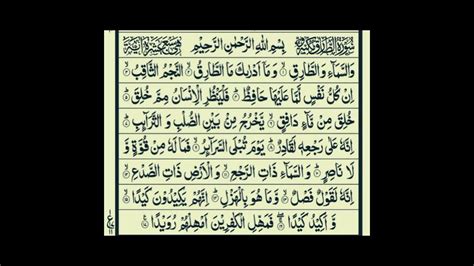 سُورَةُ الطَّارِقِ مَكِّيَّةٌ بِسْمِ اللّٰهِ الرَّحْمٰنِ الرَّحِيْمِ وَهِيَ سَبْعَ عَشَرَةَ اٰيَةً
وَالسَّمَآءِ وَالطَّارِقِ ۙ وَمَاۤ اَدْرٰىكَ مَا الطَّارِقُ ۙ النَّجْمُ الثَّاقِبُ ۙ
اِنْ كُلُّ نَفْسٍ لَّمَّا عَلَيْهَا حَافِظٌ ؕ فَلْيَنْظُرِ الْاِنْسَانُ مِمَّ خُلِقَ ؕ
خُلِقَ مِنْ مَّآءٍ دَافِقٍ ۙ يَّخْرُجُ مِنْۢ بَيْنِ الصُّلْبِ وَ التَّرَآئِبِ ؕ
اِنَّهٗ عَلٰى رَجْعِهٖ لَقَادِرٌ ؕ يَوْمَ تُبْلَى السَّرَآئِرُ ۙ فَمَا لَهٗ مِنْ قُوَّةٍ وَّ
لَا نَاصِرٍ ؕ وَ السَّمَآءِ ذَاتِ الرَّجْعِ ۙ وَ الْاَرْضِ ذَاتِ الصَّدْعِ ۙ
اِنَّهٗ لَقَوْلٌ فَصْلٌ ۙ وَّ مَا هُوَ بِالْهَزْلِ ؕ اِنَّهُمْ يَكِيْدُوْنَ كَيْدًا ۙ
وَّ اَكِيْدُ كَيْدًا ۚ فَمَهِّلِ الْكٰفِرِيْنَ اَمْهِلْهُمْ رُوَيْدًا